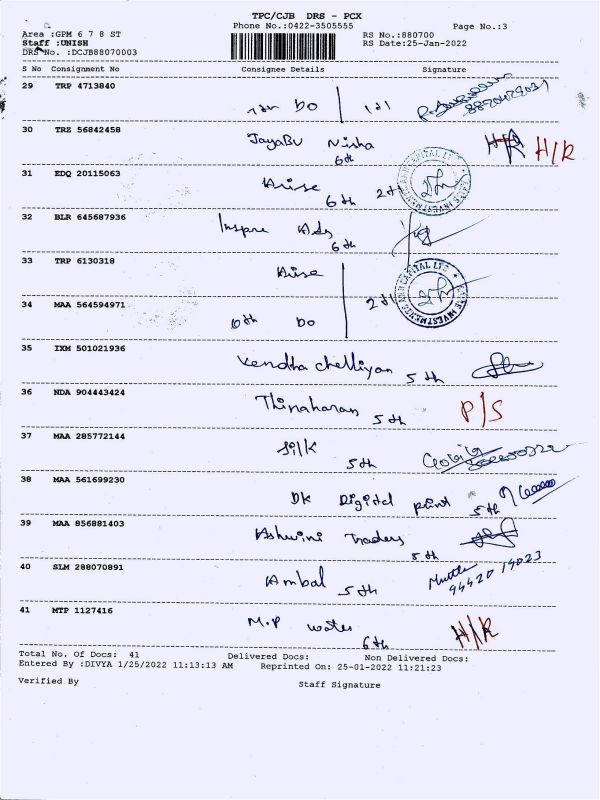 TPC/CJB DRS - PCX
Phone No.:0422-3505555
Page No.:3
Area :GPM 6 7 8 ST
RS No.:880700
Staff :UNISH
RS Date:25-Jan-2022
DRS No. :DCJB88070003
S No Consignment No Consignee Details Signature
29 TRP 4713840 Do
30 TRZ 56842458 JayaBu Nisha H/R H/R
6th
31 EDQ 20115063 Arise
6th 2nd
32 BLR 645687936 Inspre Ads
6th
33 TRP 6130318 Arise
34 MAA 564594971 6th Do
35 IXM 501021936 Vendha chelliyan 5th
36 NDA 904443424 Thinaharan 5th P/S
37 MAA 285772144 Silk
5th
38 MAA 561699230 DK Digital print 5th
39 MAA 856881403 Ashwini Traders
5th
40 SLM 288070891 Ambal 5th
94420 14023
41 MTP 1127416 M.P water
6th H/R
Total No. Of Docs: 41 Delivered Docs: Non Delivered Docs:
Entered By :DIVYA 1/25/2022 11:13:13 AM Reprinted On: 25-01-2022 11:21:23
Verified By Staff Signature